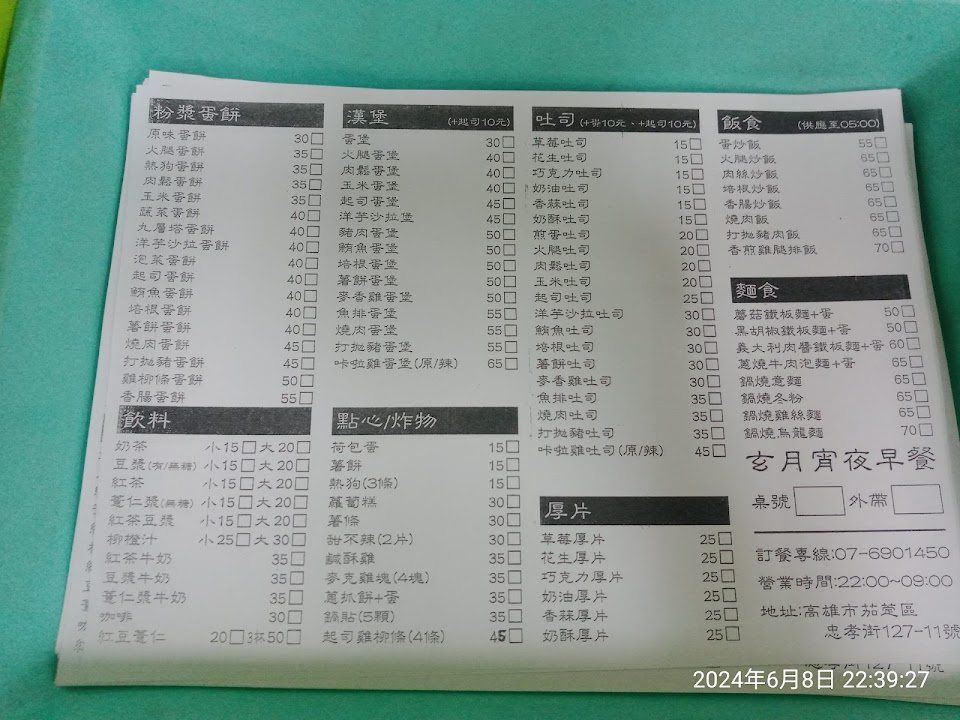 粉漿蛋餅
原味蛋餅 30□
火腿蛋餅 35□
熱狗蛋餅 35□
肉鬆蛋餅 35□
玉米蛋餅 35□
蔬菜蛋餅 40□
九層塔蛋餅 40□
洋芋沙拉蛋餅 40□
泡菜蛋餅 40□
起司蛋餅 40□
鮪魚蛋餅 40□
培根蛋餅 40□
薯餅蛋餅 40□
燒肉蛋餅 45□
打拋豬蛋餅 45□
雞柳條蛋餅 50□
香腸蛋餅 55□
飲料
奶茶 小15□大20□
豆漿(有/無糖) 小15□大20□
紅茶 小15□大20□
薏仁漿(無糖) 小15□大20□
紅茶豆漿 小15□大20□
柳橙汁 小25□大30□
紅茶牛奶 35□
豆漿牛奶 35□
薏仁漿牛奶 35□
咖啡 30□
紅豆薏仁 20□3杯50□
漢堡 (+起司10元)
蛋堡 30□
火腿蛋堡 40□
肉鬆蛋堡 40□
玉米蛋堡 40□
起司蛋堡 45□
洋芋沙拉堡 45□
豬肉蛋堡 50□
鮪魚蛋堡 50□
培根蛋堡 50□
薯餅蛋堡 50□
麥香雞蛋堡 50□
魚排蛋堡 55□
燒肉蛋堡 55□
打拋豬蛋堡 55□
咔啦雞蛋堡(原/辣) 65□
點心/炸物
荷包蛋 15□
薯餅 15□
熱狗(3條) 15□
蘿蔔糕 30□
薯條 30□
甜不辣(2片) 30□
鹹酥雞 35□
麥克雞塊(4塊) 35□
蔥抓餅+蛋 35□
鍋貼(5顆) 35□
起司雞柳條(4條) 45□
吐司 (+蛋10元、+起司10元)
草莓吐司 15□
花生吐司 15□
巧克力吐司 15□
奶油吐司 15□
香蒜吐司 15□
奶酥吐司 15□
煎蛋吐司 20□
火腿吐司 20□
肉鬆吐司 20□
玉米吐司 20□
起司吐司 25□
洋芋沙拉吐司 30□
鮪魚吐司 30□
培根吐司 30□
薯餅吐司 30□
麥香雞吐司 30□
魚排吐司 35□
燒肉吐司 35□
打拋豬吐司 35□
咔啦雞吐司(原/辣) 45□
厚片
草莓厚片 25□
花生厚片 25□
巧克力厚片 25□
奶油厚片 25□
香蒜厚片 25□
奶酥厚片 25□
飯食 (供應至05:00)
蛋炒飯 55□
火腿炒飯 65□
肉絲炒飯 65□
培根炒飯 65□
香腸炒飯 65□
燒肉飯 65□
打拋豬肉飯 65□
香煎雞腿排飯 70□
麵食
蘑菇鐵板麵+蛋 50□
黑胡椒鐵板麵+蛋 50□
義大利肉醬鐵板麵+蛋 60□
蔥燒牛肉泡麵+蛋 65□
鍋燒意麵 65□
鍋燒冬粉 65□
鍋燒雞絲麵 65□
鍋燒烏龍麵 70□
玄月宵夜早餐
桌號□ 外帶□
訂餐專線:07-6901450
營業時間:22:00~09:00
地址:高雄市茄萣區
忠孝街127-11號
2024年6月8日 22:39:27